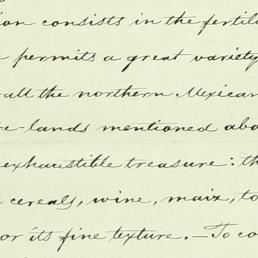 ion consists in the fertil
permits a great variety
all the northern Mexican
re-lands mentioned abo
exhaustible treasure: th
cereals, wine, maiz, to
or its fine texture. — To co